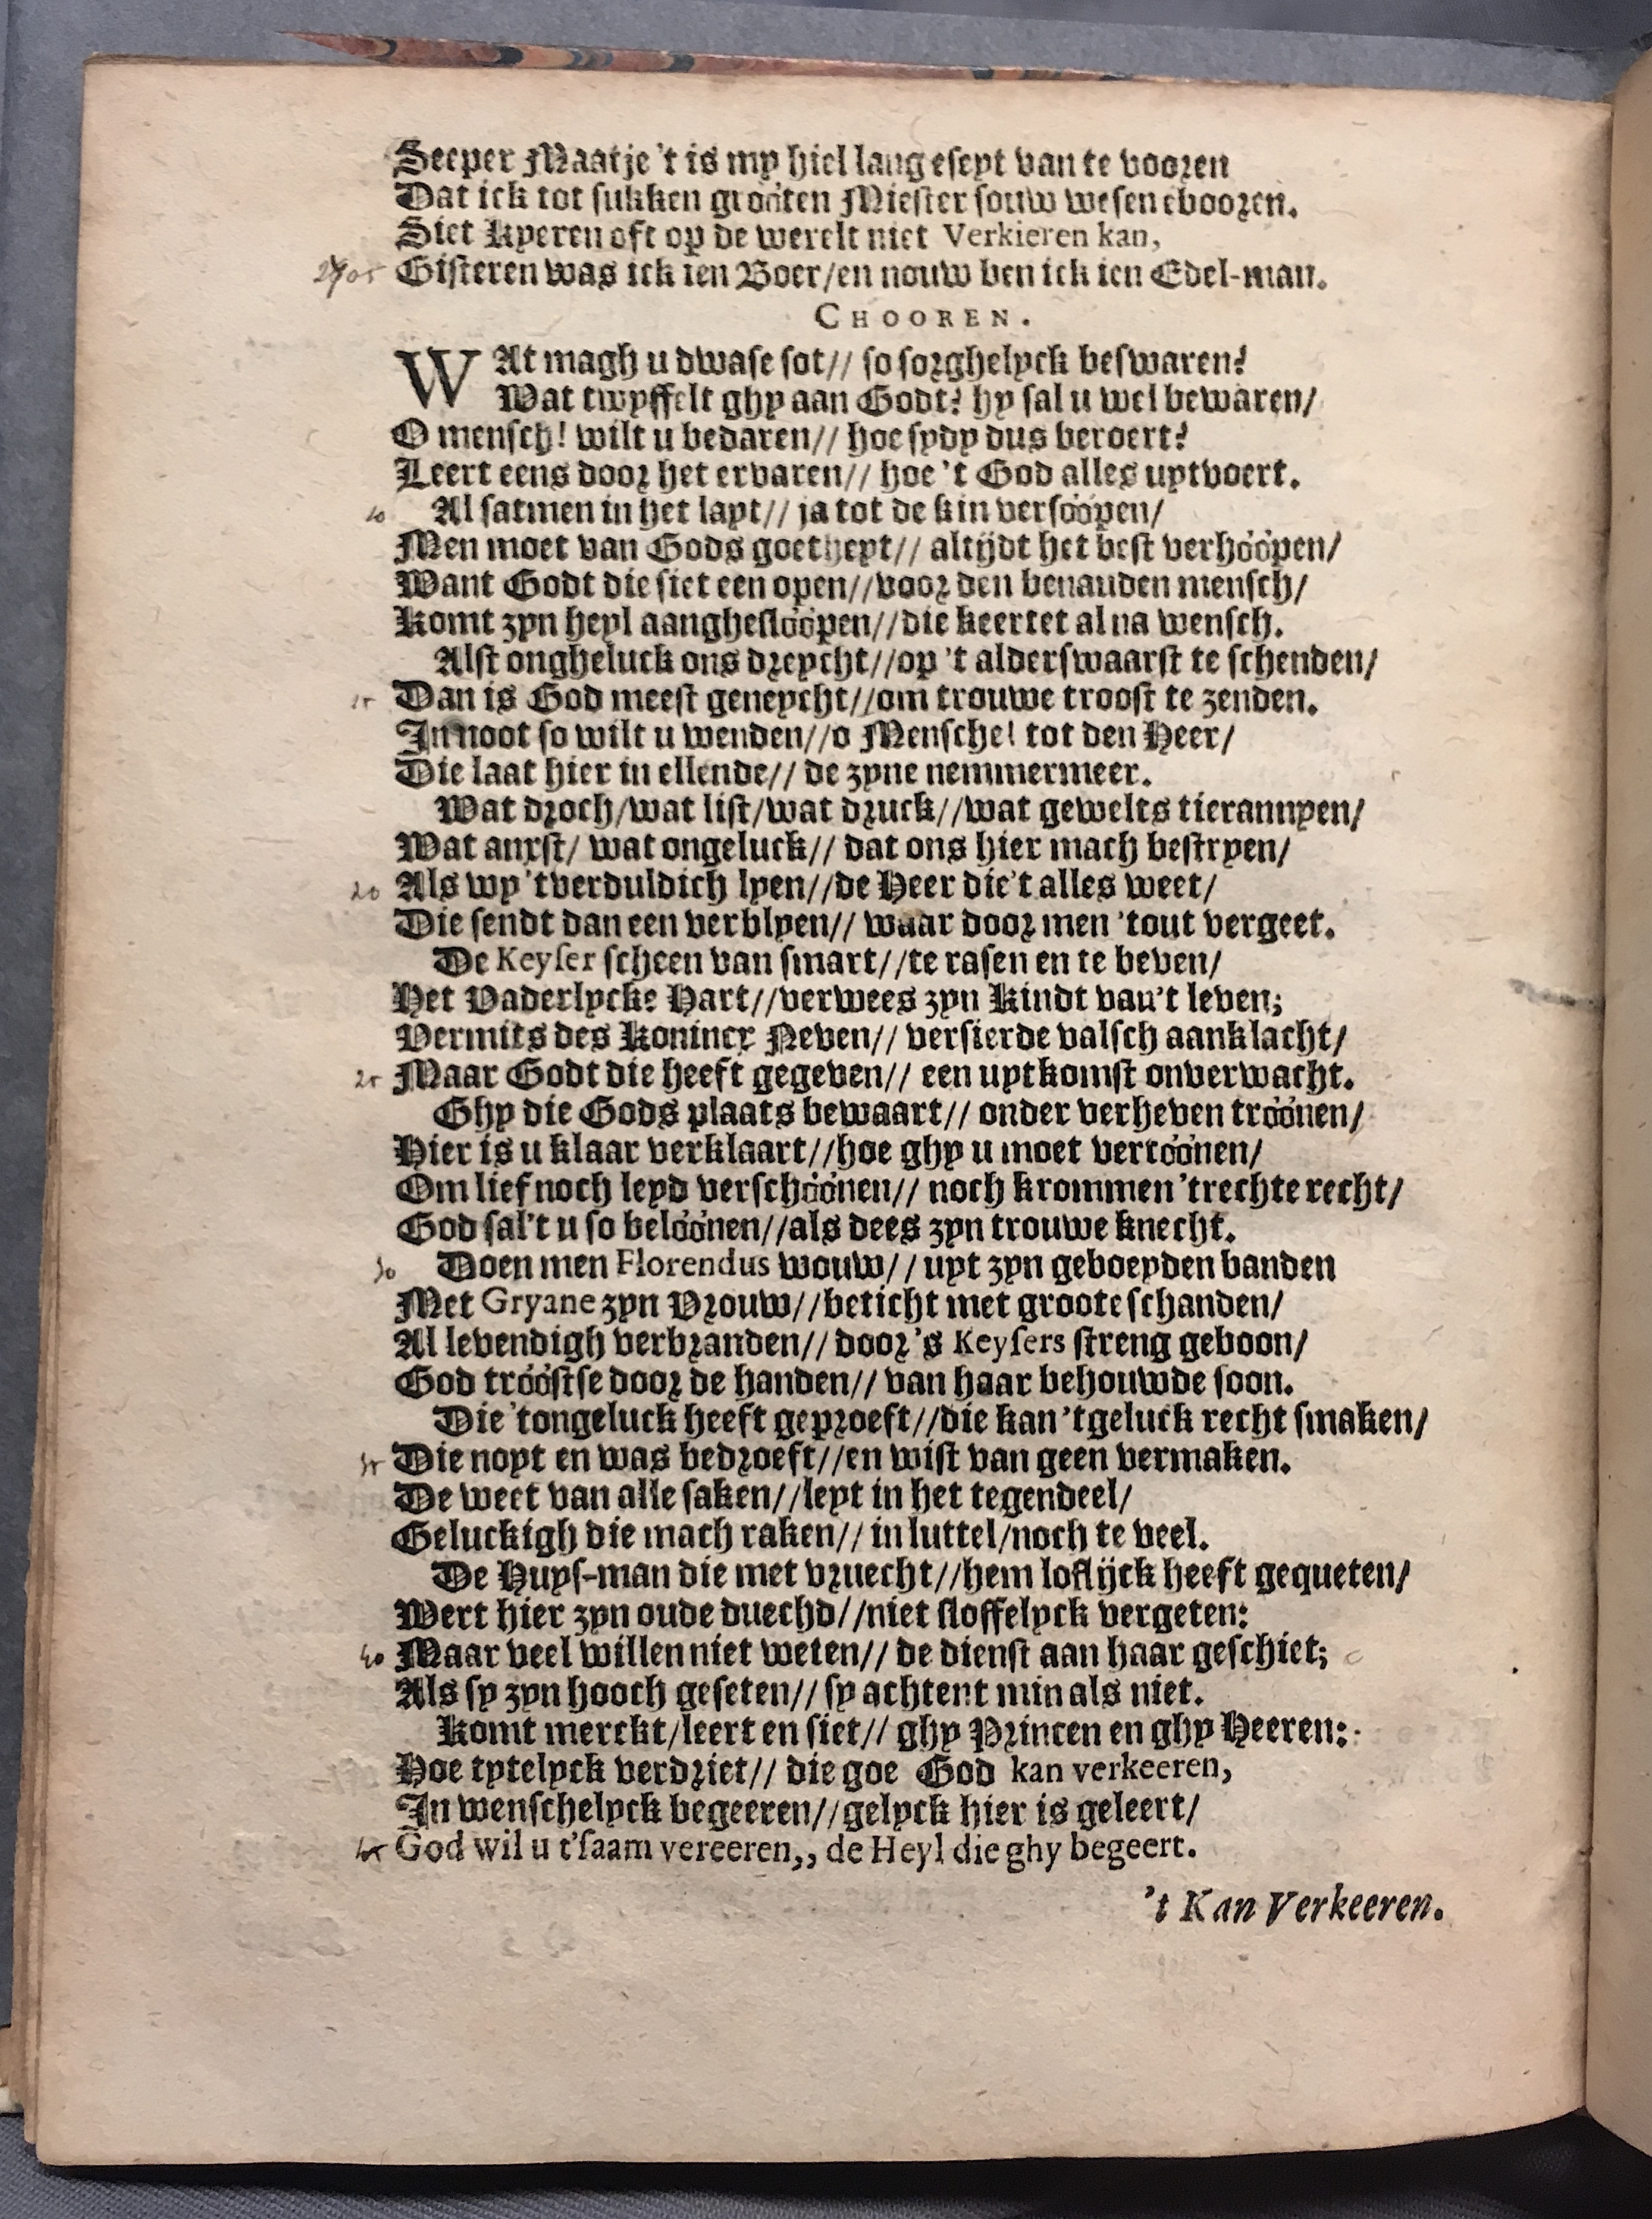 Seeper Maatje 't is my hiel lang eseyt van te vooren
Dat ick tot sukken gróóten Miester souw wesen ebooren.
Siet Kyeren oft op de werelt niet Verkieren kan,
2905 Gisteren was ick ien Boer/en nouw ben ick ien Edel-man.
CHOOREN.
WAt magh u dwase sot// so sorghelyck beswaren?
Wat twyffelt ghy aan Godt? hy sal u wel bewaren/
O mensch! wilt u bedaren// hoe sydy dus beroert?
Leert eens door het ervaren// hoe 't God alles uytvoert.
10 Al satmen in het layt// ja tot de kin versóópen/
Men moet van Gods goetheyt// altijdt het best verhóópen/
Want Godt die siet een open//voor den benauden mensch/
Komt zyn heyl aangheslóópen//die keertet al na wensch.
Alst ongheluck ons dreycht//op 't alderswaarst te schenden/
15 Dan is God meest geneycht//om trouwe troost te zenden.
In noot so wilt u wenden//o Mensche! tot den Heer/
Die laat hier in ellende// de zyne nemmermeer.
Wat droch/wat list/wat druck//wat gewelts tierannyen/
Wat anxst/ wat ongeluck// dat ons hier mach bestryen/
20 Als wy 'tverduldich lyen//de Heer die't alles weet/
Die sendt dan een verblyen// waar door men 'tout vergeet.
De Keyser scheen van smart//te rasen en te beven/
Het Vaderlycke Hart//verwees zyn Kindt van't leven;
Vermits des Konincx Neven// versierde valsch aanklacht/
25 Maar Godt die heeft gegeven// een uytkomst onverwacht.
Ghy die Gods plaats bewaart// onder verheven tróónen/
Hier is u klaar verklaart//hoe ghy u moet vertóónen/
Om lief noch leyd verschóónen// noch krommen 'trechte recht/
God sal't u so belóónen//als dees zyn trouwe knecht.
30 Doen men Florendus wouw// uyt zyn geboeyden banden
Met Gryane zyn Vrouw//beticht met groote schanden/
Al levendigh verbranden// door 's Keysers streng geboon/
God tróóstse door de handen// van haar behouwde soon.
Die 'tongeluck heeft geproeft//die kan 'tgeluck recht smaken/
35 Die noyt en was bedroeft//en wist van geen vermaken.
De weet van alle saken//leyt in het tegendeel/
Geluckigh die mach raken// in luttel/noch te veel.
De Huys-man die met vruecht//hem loflijck heeft gequeten/
Wert hier zyn oude duechd//niet sloffelyck vergeten:
40 Maar veel willen niet weten// de dienst aan haar geschiet;
Als sy zyn hooch geseten// sy achtent min als niet.
Komt merckt/leert en siet// ghy Princen en ghy Heeren:
Hoe tytelyck verdriet// die goe God kan verkeeren,
In wenschelyck begeeren//gelyck hier is geleert/
45 God wil u t'saam vereeren,, de Heyl die ghy begeert.
't Kan Verkeeren.